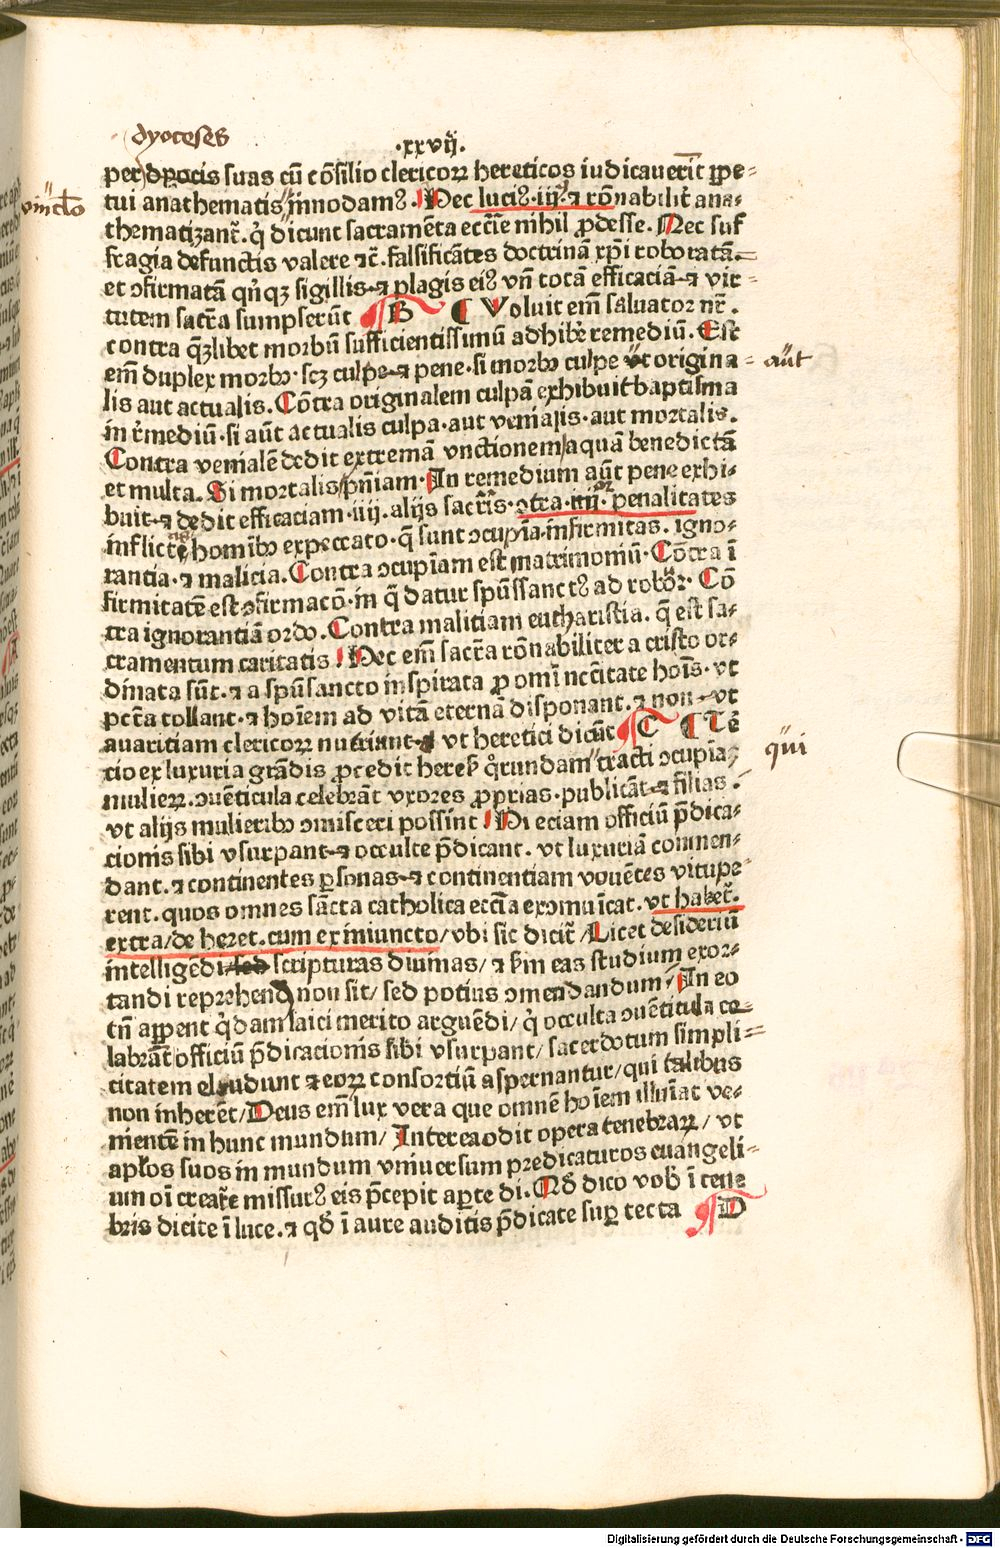 dyoceses
·xxvij.
per dyocis suas cū cōsilio clericoꝝ hereticos iudicauerīt ꝑpe⸗
vinclo
tui anathematis innodamꝰ. Nec luciꝰ·iij·⁊ rōnabilit̄ ana⸗
thematizant̄. q̇ dicunt sacramēta eccīe nihil ꝓdesse. Nec suf
fragia defunctis valere ⁊c̄. falsificātes doctrinā xp̄i roboratā⸗
et ↄfirmatā qn̄qꝫ sigillis·⁊ plagis eiꝰ vn̄ totā efficaciā·⁊ vir⸗
tutem sacr̄a sumpserūt B Voluit em̄ saluator nr̄.
contra qꝫlibet morbū sufficientissimū adhibe̅ remediū. Est
em̄ duplex morbꝰ·scꝫ culpe·⁊ pene·si morbꝰ culpe vt origina⸗
aūt
lis aut actualis. Cōtra originalem culpā exhibuit baptisma
in r̄mediū·si aūt actualis culpa·aut venialis·aut mortalis.
Contra venialē dedit extremā vnctionem/aquā benedictā
et multa. Si mortalis/pn̄iam·In remedium aūt pene exhi⸗
buit·⁊ dedit efficaciam·iiij. alijs sacr̄is·ↄtra·iiij. penalitates
inflictę homībꝰ ex peccato·q̄ sunt ↄcupīa·infirmitas. igno⸗
rantia·⁊ malicia. Contra ↄcupīam est matrimoniū·Cōtra ī
firmitatē est ↄfirmacō·in q̄ datur spūssanctꝰ ad robor̄· Cō
tra ignorantiā ordo. Contra malitiam eucharistia. q̄ est sa⸗
cramentum caritatis Nec em̄ sacr̄a rōnabiliter a cristo or⸗
dinata sūt·⁊ a spūsancto inspirata ꝓ omī nccītate hoīs·vt
pctā tollant·⁊ hoīem ad vitā eternā disponant.⁊ non vt
auaritiam clericoꝝ nutriant·⁊ vt heretici dicūt C Te
qui
cio ex luxuria grādis ꝓcedit heres̄ q̇rundam tracti ↄcupīa
mulieꝝ. ↄuēticula celebrāt vxores ꝓprias·publicāt·⁊ filias·
vt alijs mulieribꝰ ↄmisceri possint Ni eciam officiū p̄dica⸗
cionis sibi vsurpant·⁊ occulte p̄dicant. vt luxuriā commen⸗
dant.⁊ continentes ꝑsonas·⁊ continentiam vouētes vitupe⸗
rent. quos omnes sācta catholica eccīa exↄmuīcat. vt habet̄.
extra/de heret.cum ex iniuncto/vbi sic dicit̄/Licet desideriū
intelligēdi/sed scripturas diuinas/⁊ sm̄ eas studium exor⸗
tandi reprehend non sit/ sed potius ↄmendandum/ In eo
tn̄ apparent q̇dam laici merito arguēdi/ q̇ occulta ↄuēticula ce⸗
labrāt officiū p̄dicacionis sibi vsurpant/ sacerdotum simpli⸗
citatem eludunt ⁊ eoꝝ consortiū aspernantur/qui talibus
non inherēt/Deus em̄ lux vera que omnē hoīem illumīat ve⸗
nientē in hunc mundum/ Interea odit opera tenebraꝝ/ vt
apl̄os suos in mundum vniuersum predicaturos euangeli⸗
um oī creatūre missurꝰ eis p̄cepit aꝑte di. Qd̄ dico vob̄ ī tene
bris dicite ī luce.⁊ qd̄ ī aure auditis p̄dicate suꝑ tecta D
Digitalisierung gefördert durch die Deutsche Forschungsgemeinschaft - DFG